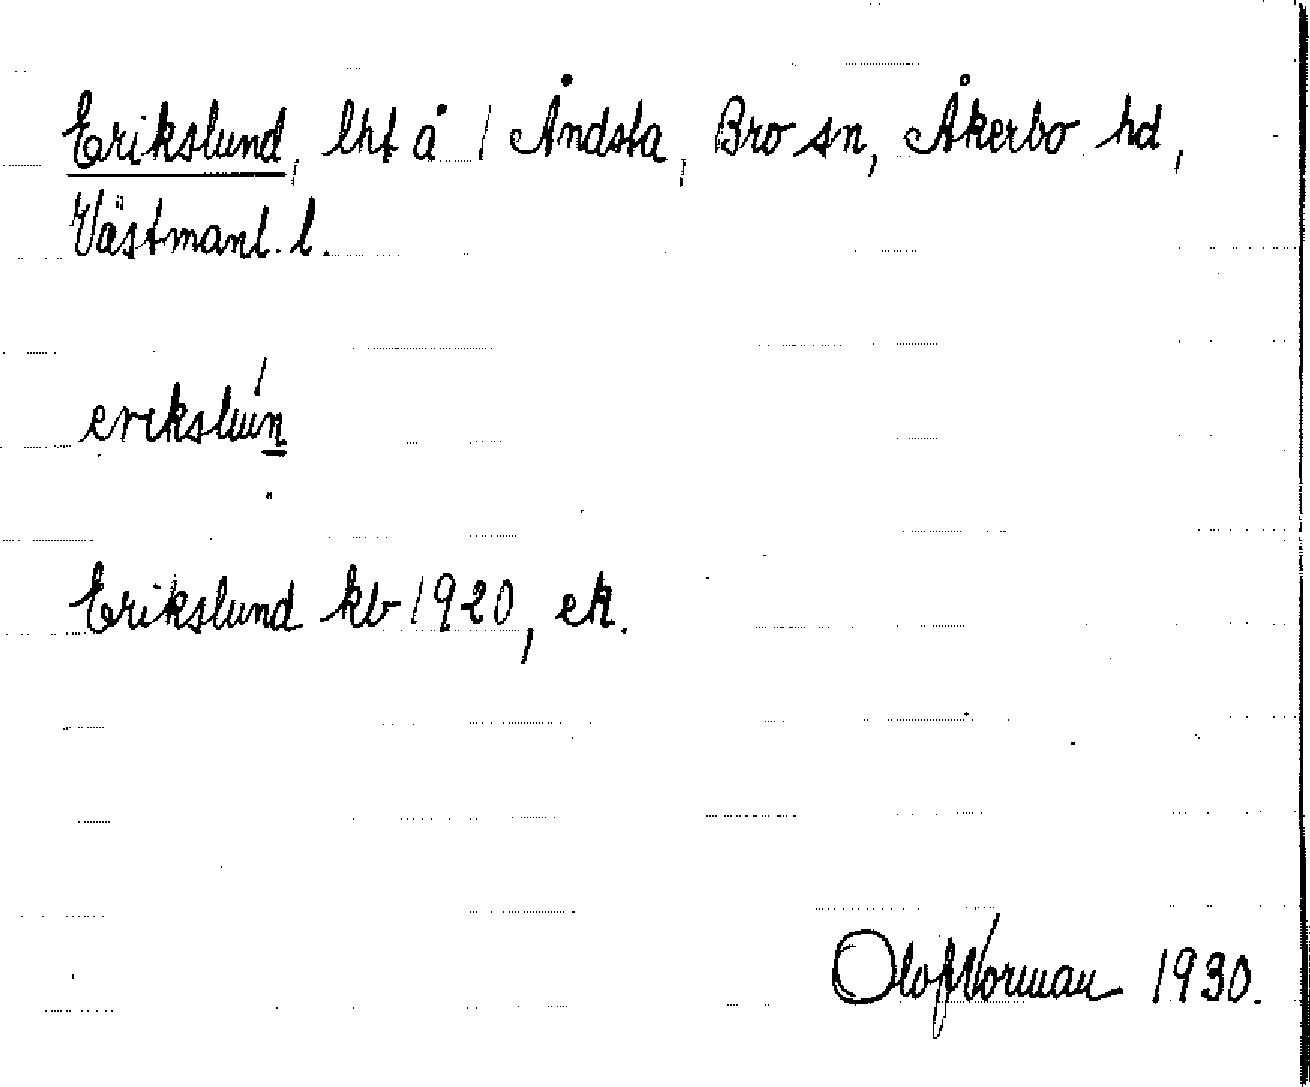 Erikslund, lht å 1 Åndsta, Bro sn, Åkerbo hd,
Västmanl. l.
erikslún
Erikslund kb 1920, ek.
Olof Norman 1930.